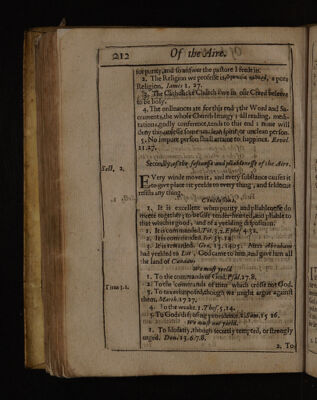 212 Of the Aire.
for purity, and so answer the pasture I feede in.
2. The Religion we professe is, a pure
Religion, James 1. 27.
3. The Catholicke Church (we in our Creed beleeve
to be holy.
4. The ordinances are for this end; the Word and Sa-
craments, the whole Church-liturgy; all reading, medi-
tations, godly conference, tends to this end: none will
deny this unlesse some unclean spirit or unclean person.
5. No impure person shall attaine to happines. Revel.
21. 27.
Secondly, of the softnesse and pliablenesse of the Aire.
Sect. 2.
Every winde moves it, and every substance causes it
to give place; it yeelds to every thing, and seldome
resists any thing.
Conclusions.
1. It is excellent when purity and pliablenesse do
meete together; to be soft tender-hearted, and pliable to
that which is good; and of a yeelding disposition.
1. It is commended, Tit. 3. 2. Ephes. 4. 32.
2. It is commended.
3. It is rewarded. Gen. 13. 14. 15. After Abraham
had yeelded to Lot, God came to him, and gave him all
the land of Canaan.
We must yeeld
1. To the commands of God, Psal. 27. 8.
2. To the commands of men which crosse not God.
3. To taxes imposed, though we might argue against
them, Match. 17 27.
4. To the weake, 1 Thes. 5. 14.
5. To Gods disposing providence, 2. Sam. 15 26.
We must not yeeld.
1. To Idolatry, though secretly tempted, or strongly
urged. Deut. 13. 6. 7. 8.
2. To